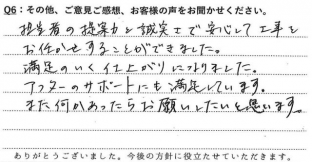 Q6：その他、ご意見ご感想、お客様の声をお聞かせください。
担当者の提案力と誠実さで安心して工事を
お任せすることができました。
満足のいく仕上がりになりました。
アフターのサポートにも満足しています。
また何かあったらお願いしたいと思います。
ありがとうございました。今後の方針に役立たせていただきます。